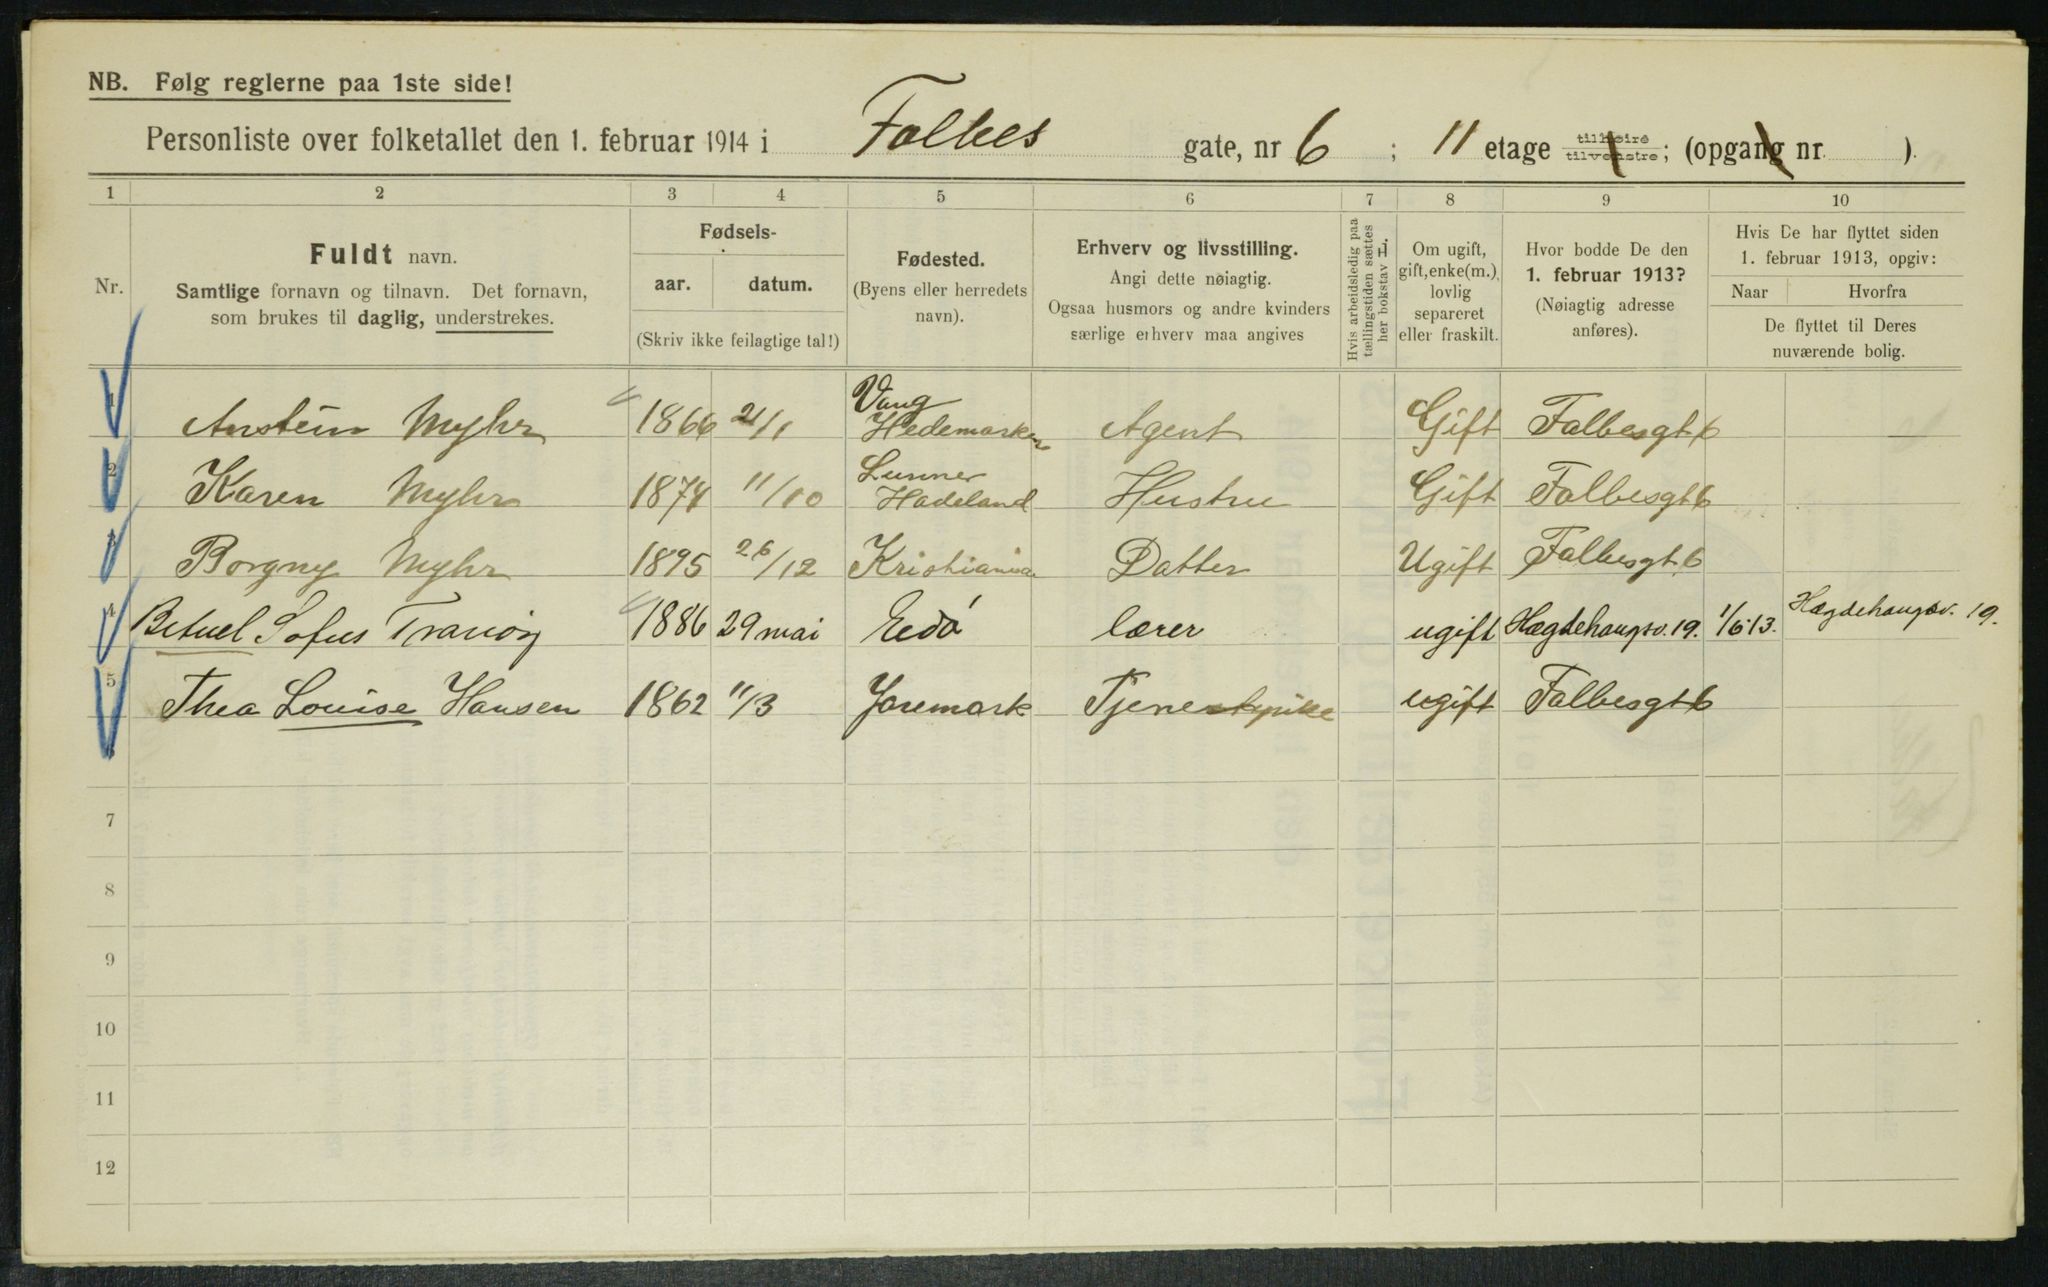 NB. Følg reglerne paa 1ste side!
Personliste over folketallet den 1. februar 1914 i Falbes gate, nr 6 ; 11 etage tilhøire tilvenstre ; (opgang nr. ).
1 2 3 4 5 6 7 8 9 10
Nr.
Fuldt navn.
Samtlige fornavn og tilnavn. Det fornavn,
som brukes til daglig, understrekes.
Fødsels-
aar. datum.
(Skriv ikke feilagtige tal!)
Fødested.
(Byens eller herredets
navn).
Erhverv og livsstilling.
Angi dette nøiagtig.
Ogsaa husmors og andre kvinders
særlige erhverv maa angives
Hvis arbeidsledig paa
tællingstiden sættes
her bokstav L.
Om ugift,
gift, enke(m.),
lovlig
separeret
eller fraskilt.
Hvor bodde De den
1. februar 1913?
(Nøiagtig adresse
anføres).
Hvis De har flyttet siden
1. februar 1913, opgiv:
Naar Hvorfra
De flyttet til Deres
nuværende bolig.
1 Anstein Myhr 1866 21/1 Vang Hedemarken Agent Gift Falbesgt 6
2 Karen Myhr 1874 11/10 Lunner Hadeland Hustru Gift Falbesgt 6
3 Borgny Myhr 1895 26/12 Kristiania Datter Ugift Falbesgt 6
4 Betuel Sofus Tranöy 1886 29 mai Edö lærer ugift Hægdehaugsv. 19. 1/6 13. Hægdehaugsv. 19.
5 Thea Louise Hansen 1862 11/3 Jaremark Tjenestepike ugift Falbesgt 6
6
7
8
9
10
11
12